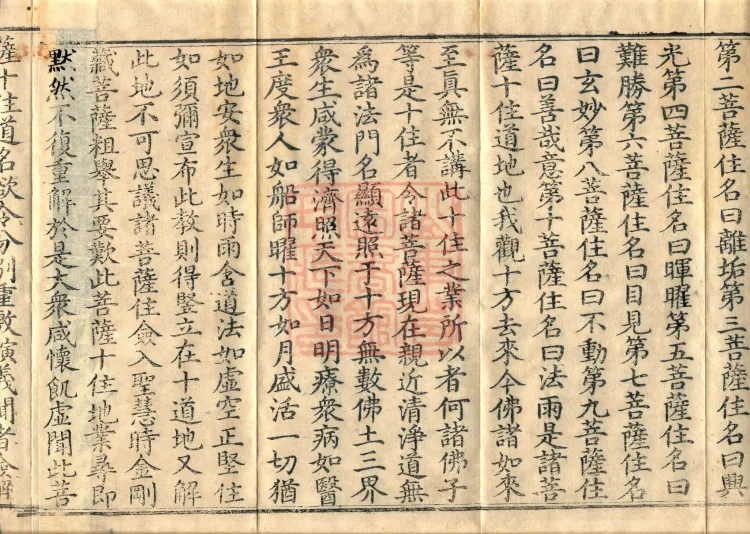 第二菩薩住名曰離垢第三菩薩住名曰興
光第四菩薩住名曰暉曜第五菩薩住名曰
難勝第六菩薩住名曰目見第七菩薩住名
曰玄妙第八菩薩住名曰不動第九菩薩住
名曰善哉意第十菩薩住名曰法雨是諸菩
薩十住道地也我觀十方去來今佛諸如來
至眞無不講此十住之業所以者何諸佛子
等是十住者令諸菩薩現在親近清淨道無
爲諸法門名顯遠照于十方無數佛土三界
衆生咸蒙得濟照天下如日明療衆病如醫
王度衆人如船師曜十方如月盛活一切猶
如地安衆生如時雨含道法如虛空正堅住
如須彌宣布此教則得竪立在十道地又解
此地不可思議諸菩薩住僉入聖慧時金剛
藏菩薩粗舉其要歎此菩薩十住地業尋即
默然不復重解於是大衆咸懷飢虛聞此菩
薩十住道名欲令分別重散演義聞者